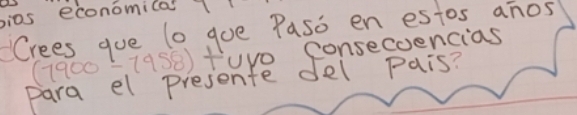 ios económicos
¿Crees que lo que Pasó en estos años
(1900 - 1958) tuvo consecuencias
para el presente del país?